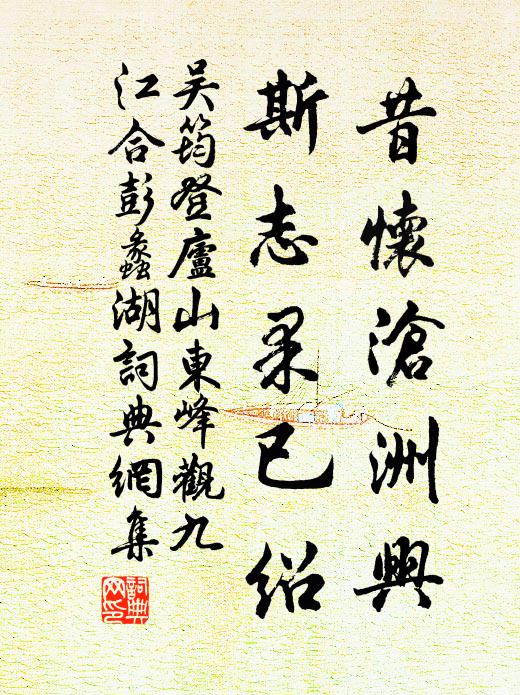 昔懷滄洲興
斯志果已紹
吴筠登廬山東峰觀九
江合彭蠡湖詞典網集
詞典網印